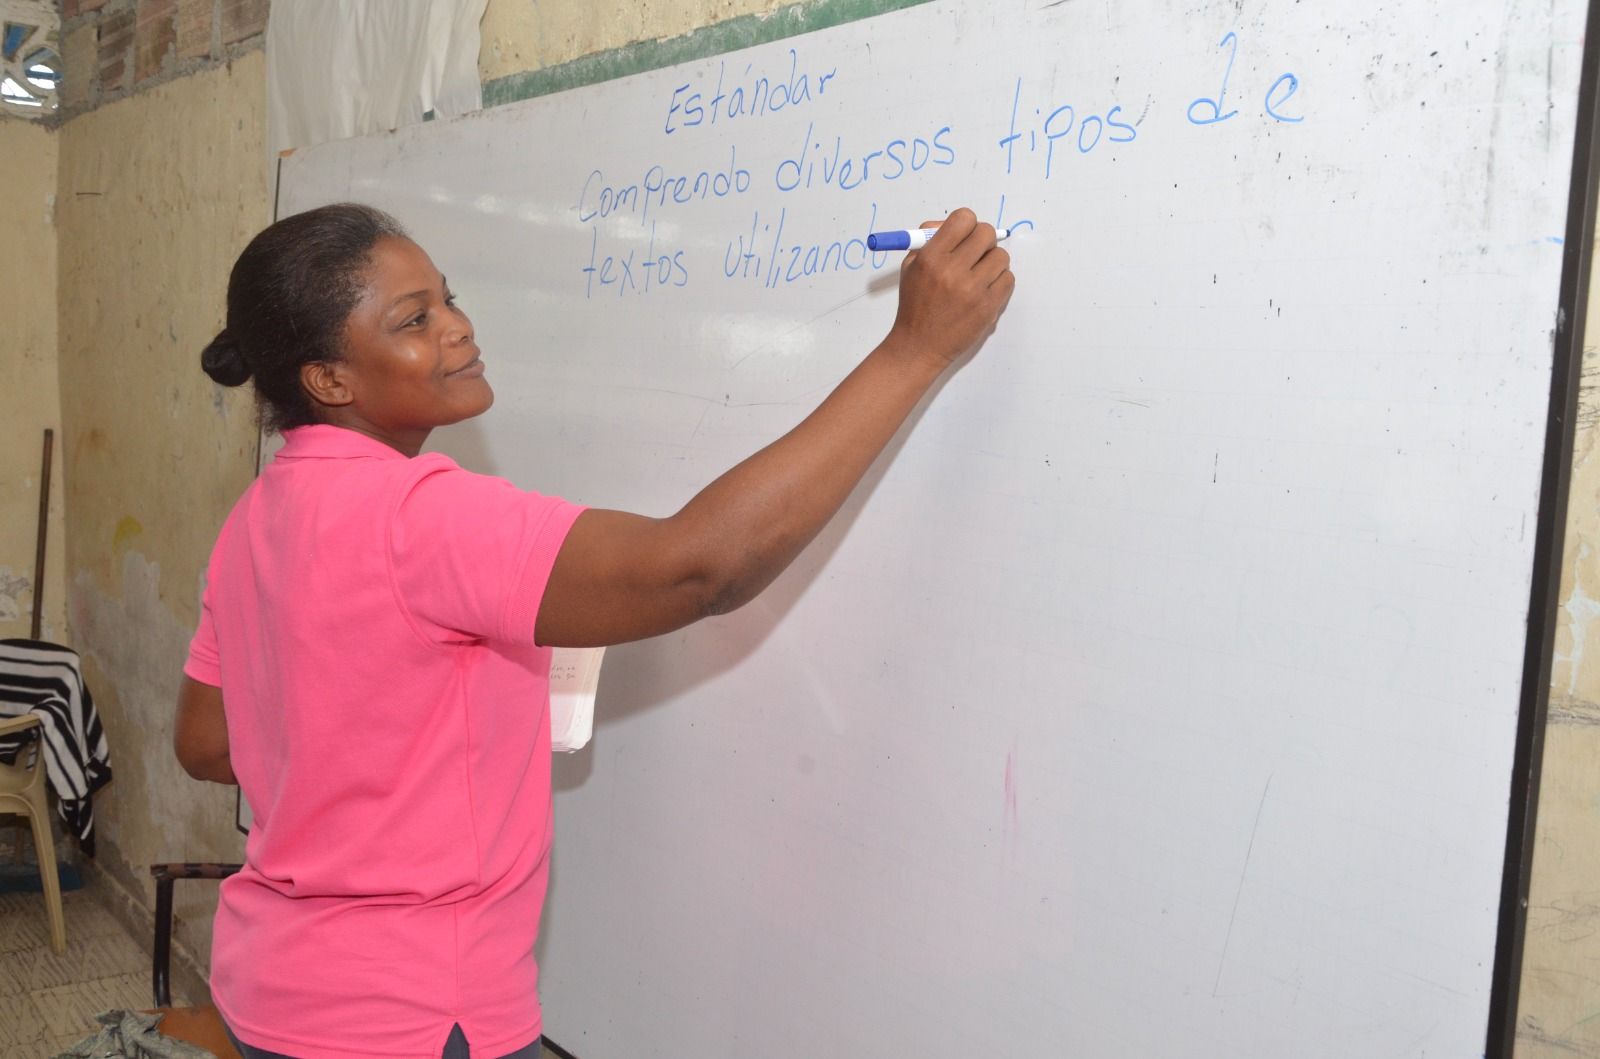 Estándar
Comprendo diversos tipos de
textos utilizando